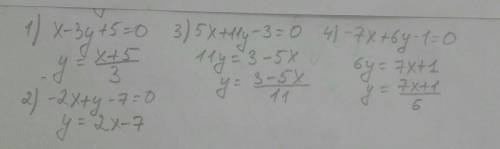 1) x-3y+5=0
y = x+5/3
2) -2x+y-7=0
y = 2x-7
3) 5x+11y-3=0
11y = 3-5x
y = 3-5x/11
4) -7x+6y-1=0
6y = 7x+1
y = 7x+1/6